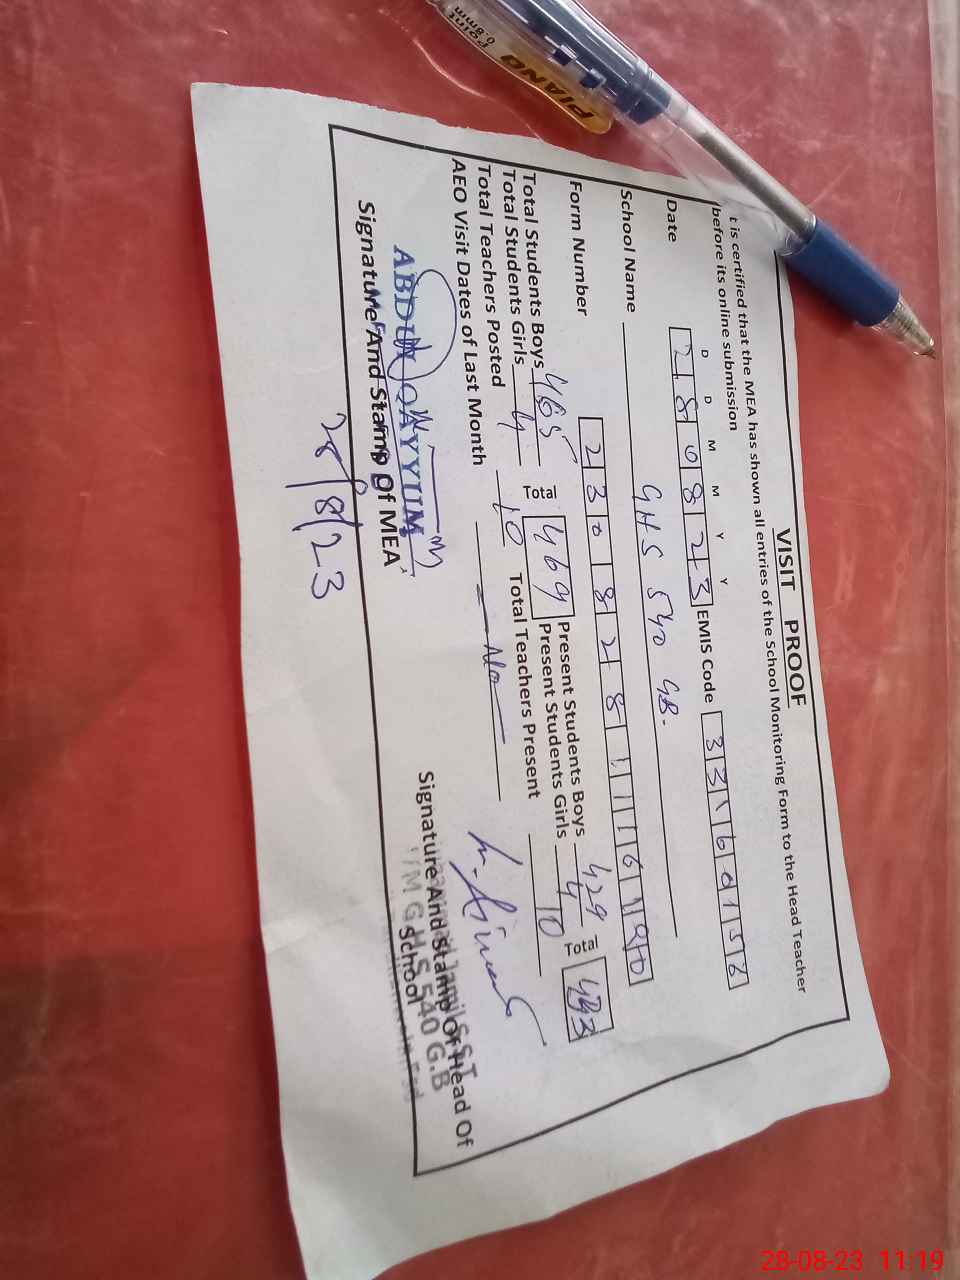 VISIT PROOF
t is certified that the MEA has shown all entries of the School Monitoring Form to the Head Teacher
before its online submission
D D M M Y Y
Date 28 08 23 EMIS Code
School Name GHS 540 GB.
Form Number
Total Students Boys 465 Total 469 Present Students Boys 429 Total
Total Students Girls 4 Present Students Girls 4
Total Teachers Posted 10 Total Teachers Present 10
AEO Visit Dates of Last Month No
ABDUL QAYYUM
Signature And Stamp Of MEA
28/8/23
Signature And Stamp Of Head Of
School
G.H.S 540 G.B
PIANO
Point
0.8mm
28-08-23 11:19